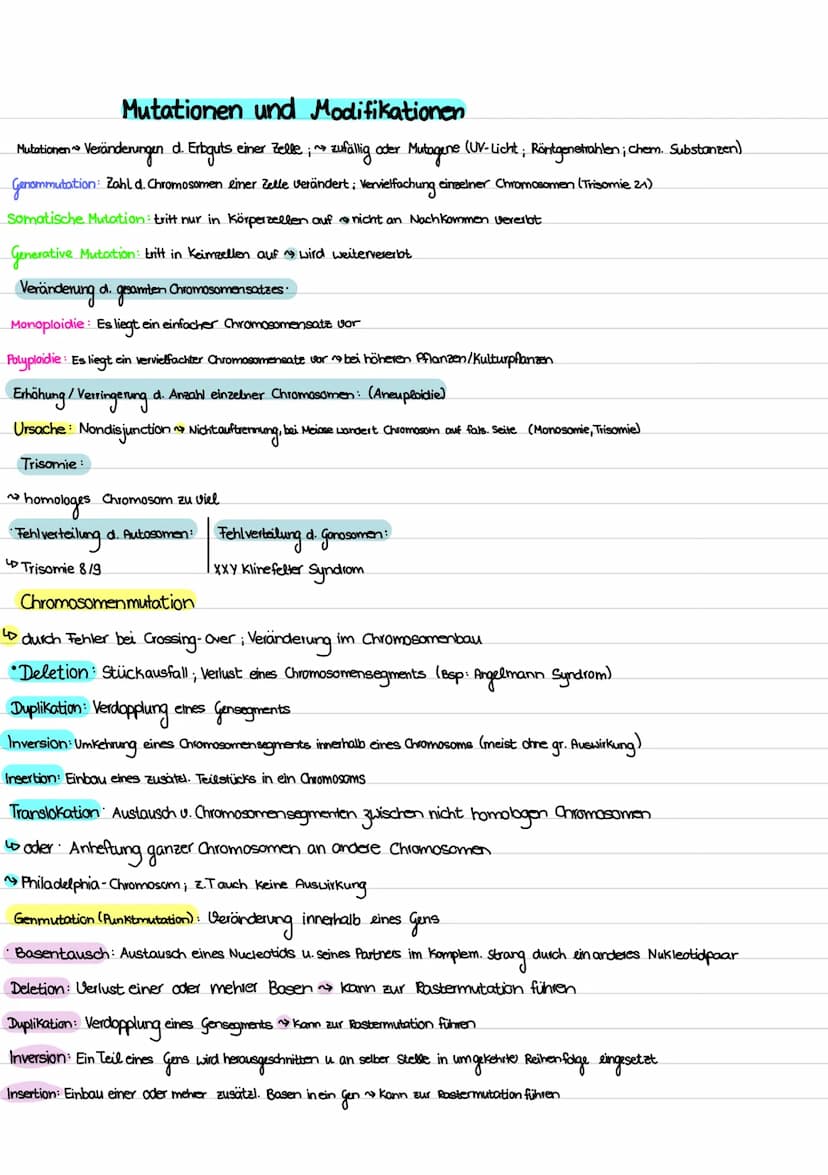 Mutationen und Modifikationen
Mutationen ⇝ Veränderungen d. Erbguts einer Zelle ; ⇝ zufällig oder Mutagene (UV-Licht ; Röntgenstrahlen ; chem. Substanzen)
Genommutation: Zahl d. Chromosomen einer Zelle verändert ; Vervielfachung einzelner Chromosomen (Trisomie 21)
Somatische Mutation: tritt nur in Körperzellen auf ⇝ nicht an Nachkommen vererbt
Generative Mutation: tritt in Keimzellen auf ⇝ wird weitervererbt
Veränderung d. gesamten Chromosomensatzes:
Monoploidie: Es liegt ein einfacher Chromosomensatz vor
Polyploidie: Es liegt ein vervielfachter Chromosomensatz vor ⇝ bei höheren Pflanzen/Kulturpflanzen
Erhöhung / Verringerung d. Anzahl einzelner Chromosomen: (Aneuploidie)
Ursache: Nondisjunction ⇝ Nichtauftrennung, bei Meiose wandert Chromosom auf fals. Seite (Monosomie, Trisomie)
Trisomie:
⇝ homologes Chromosom zu viel
· Fehlverteilung d. Autosomen: Fehlverteilung d. Gonosomen:
↳ Trisomie 8/9 XXY Klinefelter Syndrom
Chromosomenmutation
↳ durch Fehler bei Crossing-Over ; Veränderung im Chromosomenbau
• Deletion: Stückausfall ; Verlust eines Chromosomensegments (Bsp: Angelmann Syndrom)
Duplikation: Verdopplung eines Gensegments
Inversion: Umkehrung eines Chromosomensegments innerhalb eines Chromosoms (meist ohne gr. Auswirkung)
Insertion: Einbau eines zusätzl. Teilstücks in ein Chromosoms
Translokation: Austausch v. Chromosomensegmenten zwischen nicht homologen Chromosomen
↳ oder: Anheftung ganzer Chromosomen an andere Chromosomen
⇝ Philadelphia-Chromosom ; z.T auch keine Auswirkung
Genmutation (Punktmutation): Veränderung innerhalb eines Gens
· Basentausch: Austausch eines Nucleotids u. seines Partners im Komplem. Strang durch ein anderes Nukleotidpaar
Deletion: Verlust einer oder mehrer Basen ⇝ kann zur Rastermutation führen
Duplikation: Verdopplung eines Gensegments ⇝ kann zur Rastermutation führen
Inversion: Ein Teil eines Gens wird herausgeschnitten u. an selber Stelle in umgekehrter Reihenfolge eingesetzt
Insertion: Einbau einer oder meher zusätzl. Basen in ein Gen ⇝ kann zur Rastermutation führen